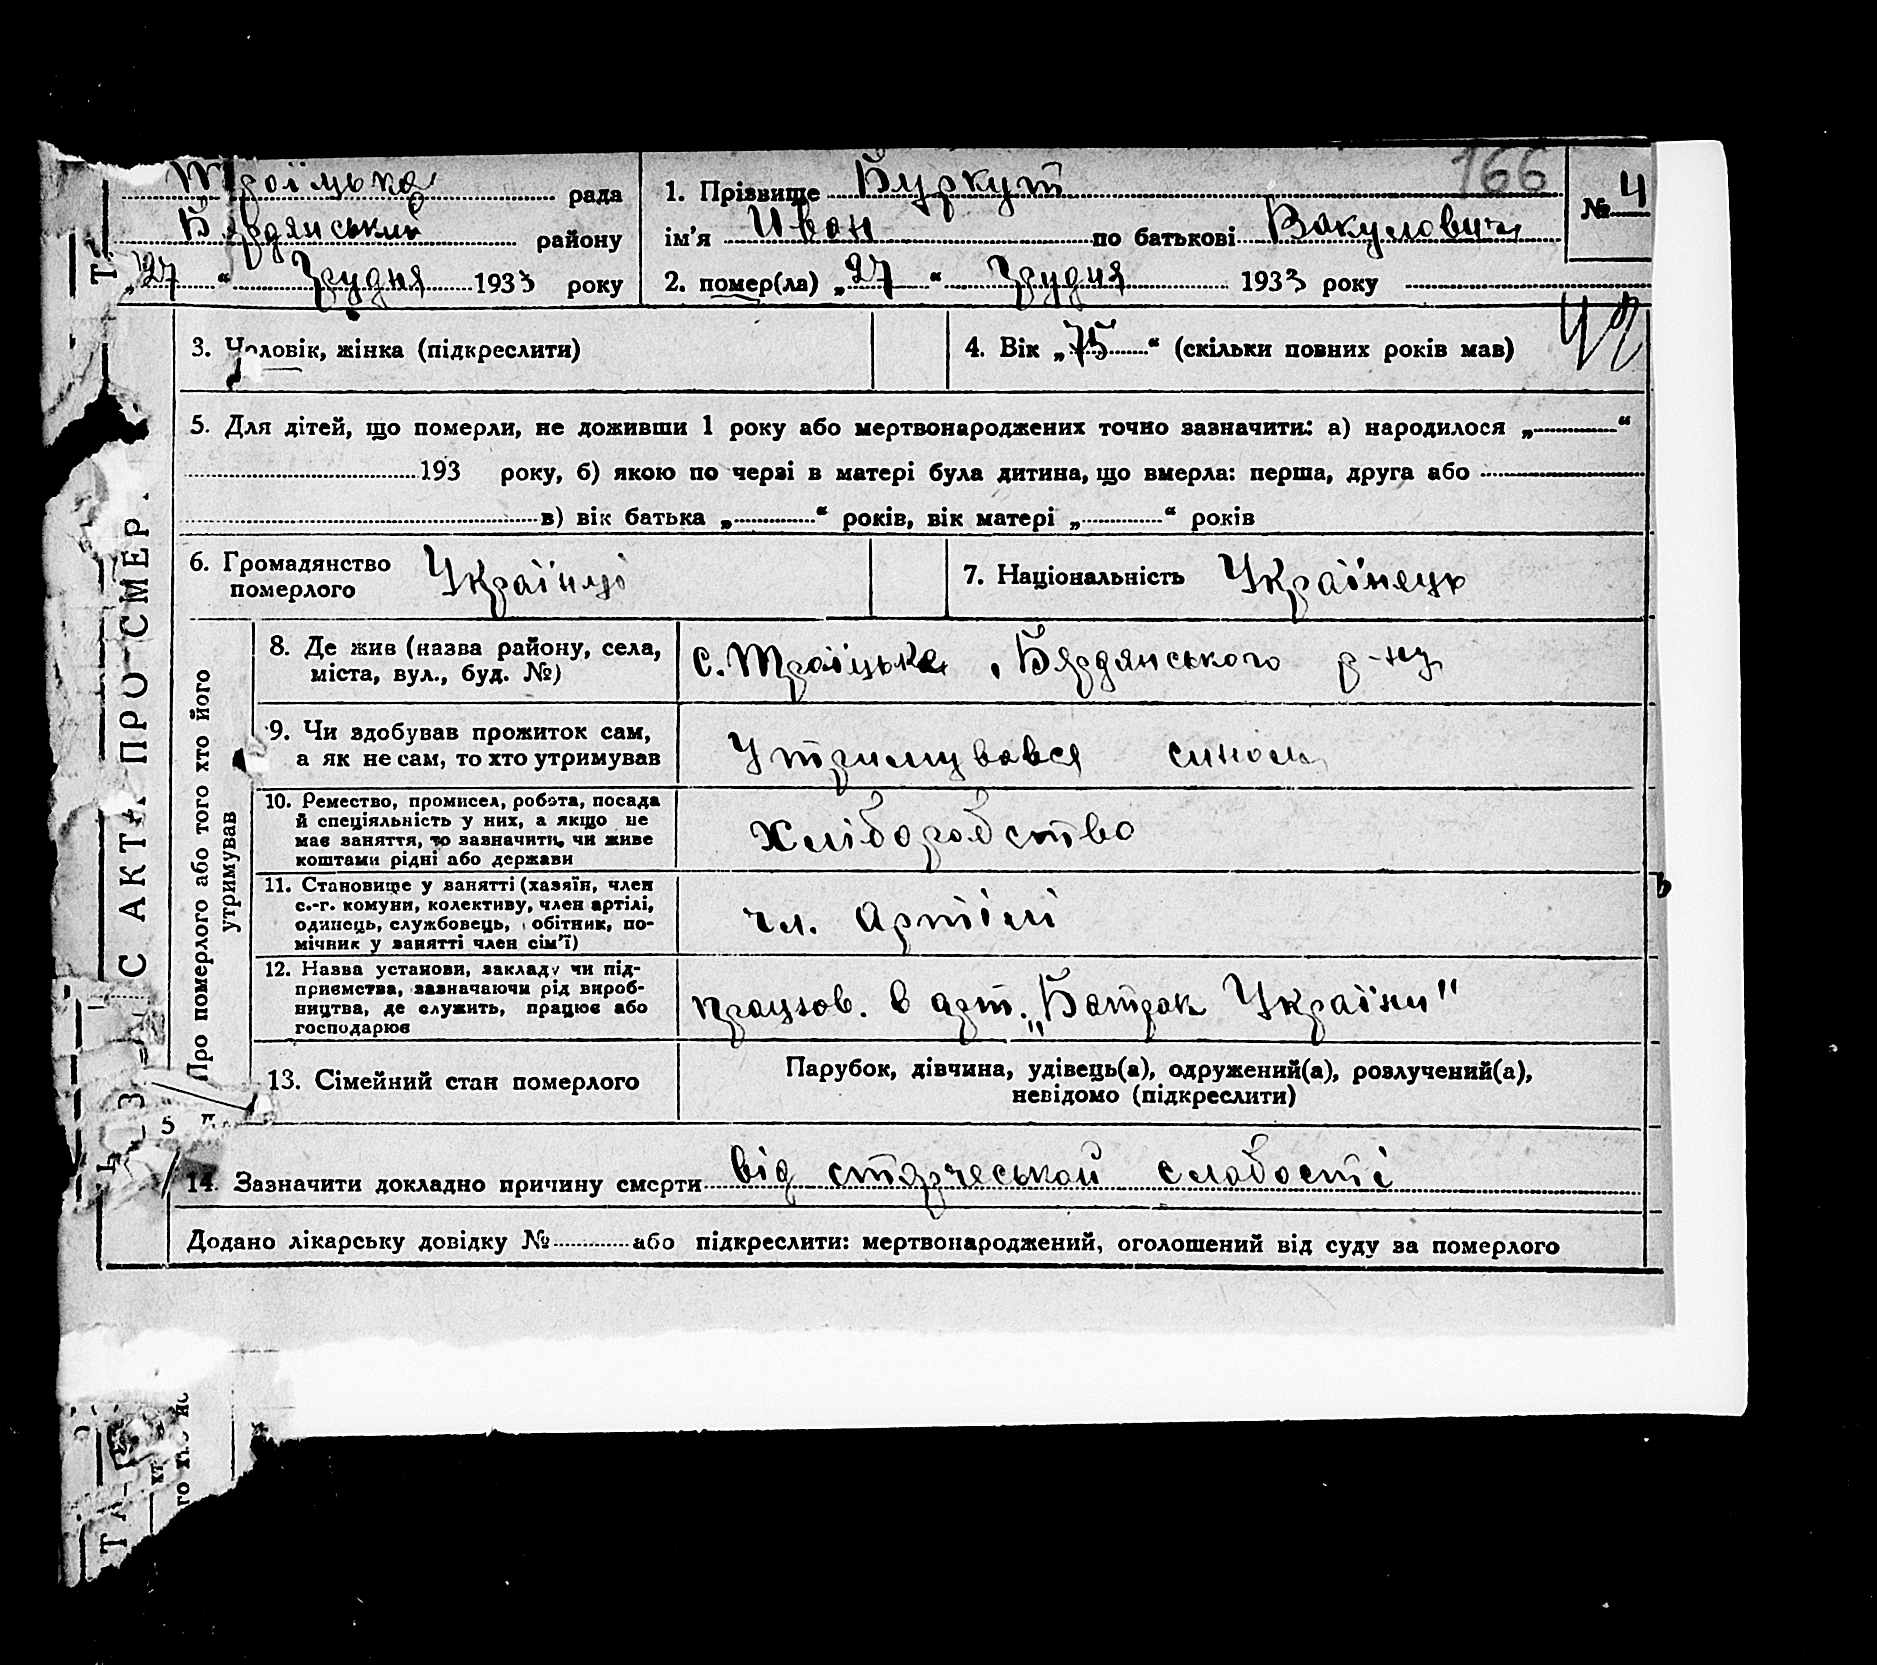 Троїцька рада
Бердянський району
„27“ Грудня 1933 року
166
№ 4
1. Прізвище Буркут
ім’я Иван по батькові Вакулович
2. помер(ла) „27“ Грудня 1933 року
3. Чоловік, жінка (підкреслити)
4. Вік „75“ (скільки повних років мав)
5. Для дітей, що померли, не доживши 1 року або мертвонароджених точно зазначити: а) народилося „ “
193 року, б) якою по черзі в матері була дитина, що вмерла: перша, друга або
в) вік батька „ “ років, вік матері „ “ років
6. Громадянство
померлого
Україньці
7. Національність Українець
З АКТА ПРО СМЕР
Про померлого або того хто його
утримував
8. Де жив (назва району, села,
міста, вул., буд. №)
с. Троїцьке, Бярдянського р-ну
9. Чи здобував прожиток сам,
а як не сам, то хто утримував
Утримувався сином
10. Ремество, промисел, робота, посада
й спеціяльність у них, а якщо не
має заняття, то зазначити, чи живе
коштами рідні або держави
Хліборобство
11. Становище у занятті (хазяїн, член
с.-г. комуни, колективу, член артілі,
одинець, службовець, обітник, по-
мічник у занятті член сім’ї)
чл. Артілі
12. Назва установи, закладу чи під-
приємства, зазначаючи рід вироб-
ництва, де служить, працює або
господарює
працюв. в арт. „Батрак України"
13. Сімейний стан померлого
Парубок, дівчина, удівець(а), одружений(а), розлучений(а),
невідомо (підкреслити)
14. Зазначити докладно причину смерти від стярческой слабості
Додано лікарську довідку № або підкреслити: мертвонароджений, оголошений від суду за померлого